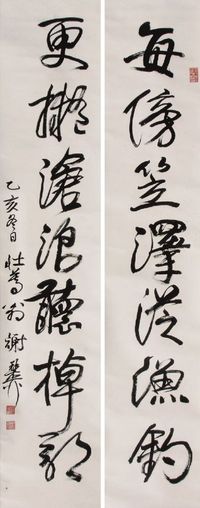 每傍笠澤從漁釣
更擬滄浪聽棹歌
乙亥冬日 壯暮翁 謝稚柳